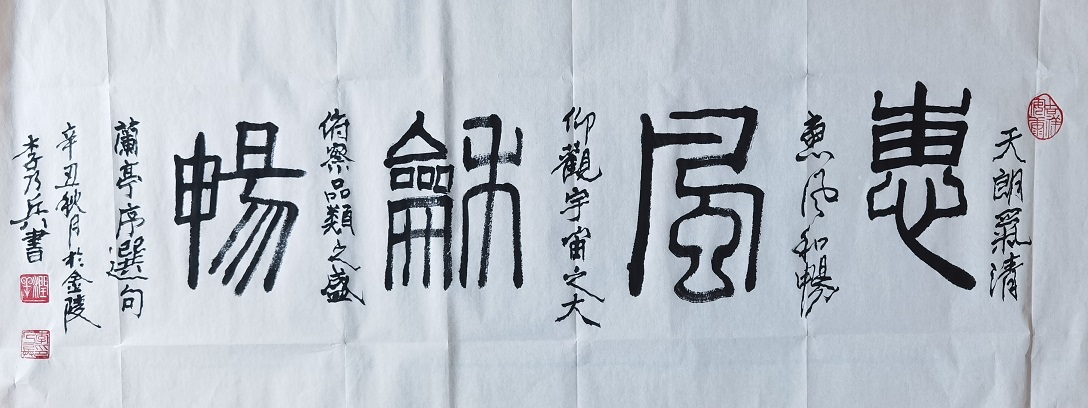 惠風龢暢
天朗氣清
惠风和暢
仰觀宇宙之大
俯察品類之盛
蘭亭序選句
辛丑秋月於金陵
李乃兵書